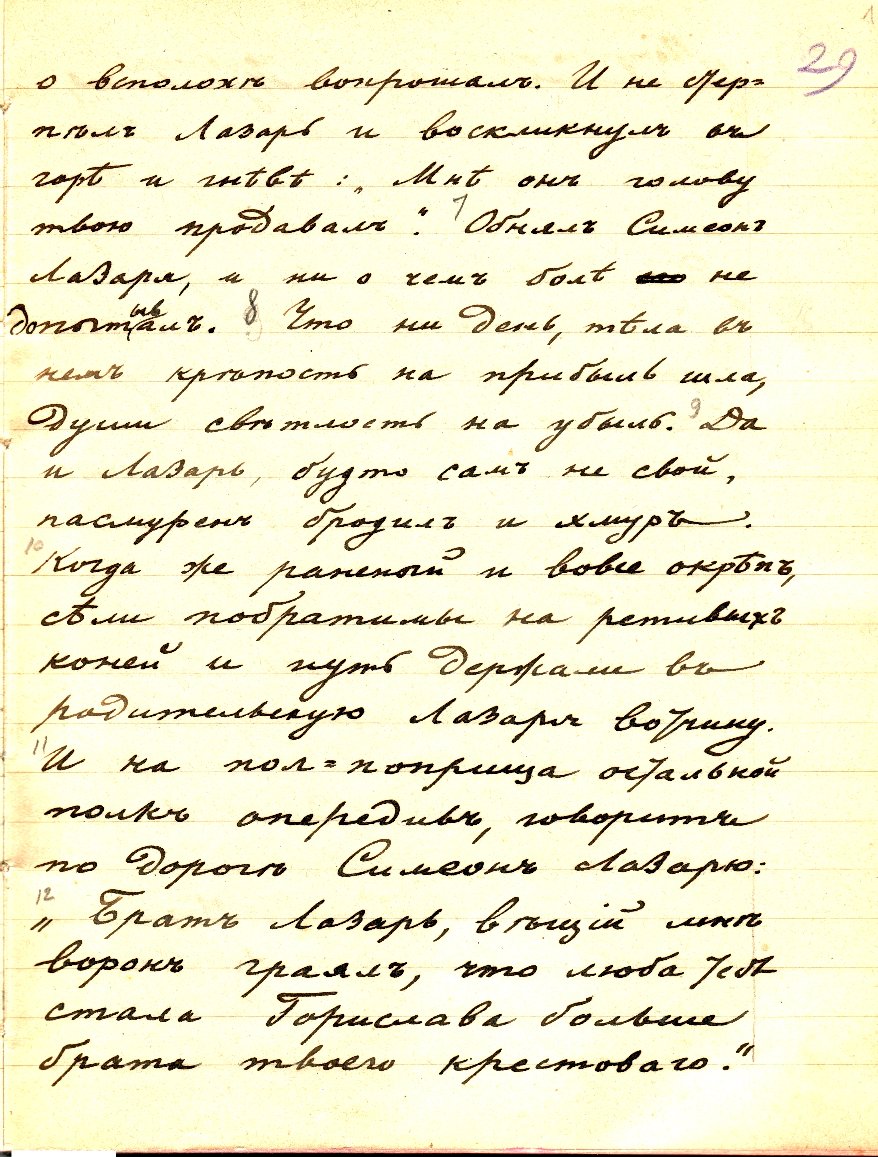 29
о всполохѣ вопрошалъ. И не стер=
пѣлъ Лазарь и воскликнулъ въ
горѣ и гнѣвѣ: „Мнѣ онъ голову
твою продавалъ“. 7 Обнялъ Симеонъ
Лазаря, и ни о чемъ болѣ не
допытывалъ. 8 Что ни день, тѣла въ
немъ крѣпость на прибыль шла,
души свѣтлость на убыль. 9 Да
и Лазарь, будто самъ не свой,
пасмуренъ бродилъ и хмуръ.
10 Когда же раненый и вовсе окрѣпъ,
сѣли побратимы на ретивыхъ
коней и путь держали въ
родительскую Лазаря вотчину.
11 И на пол=поприща остальной
полкъ опередивъ, говоритъ
по дорогѣ Симеонъ Лазарю:
12 „Братъ Лазарь, вѣщій мнѣ
воронъ граялъ, что люба тебѣ
стала Горислава больше
брата твоего крестоваго.“